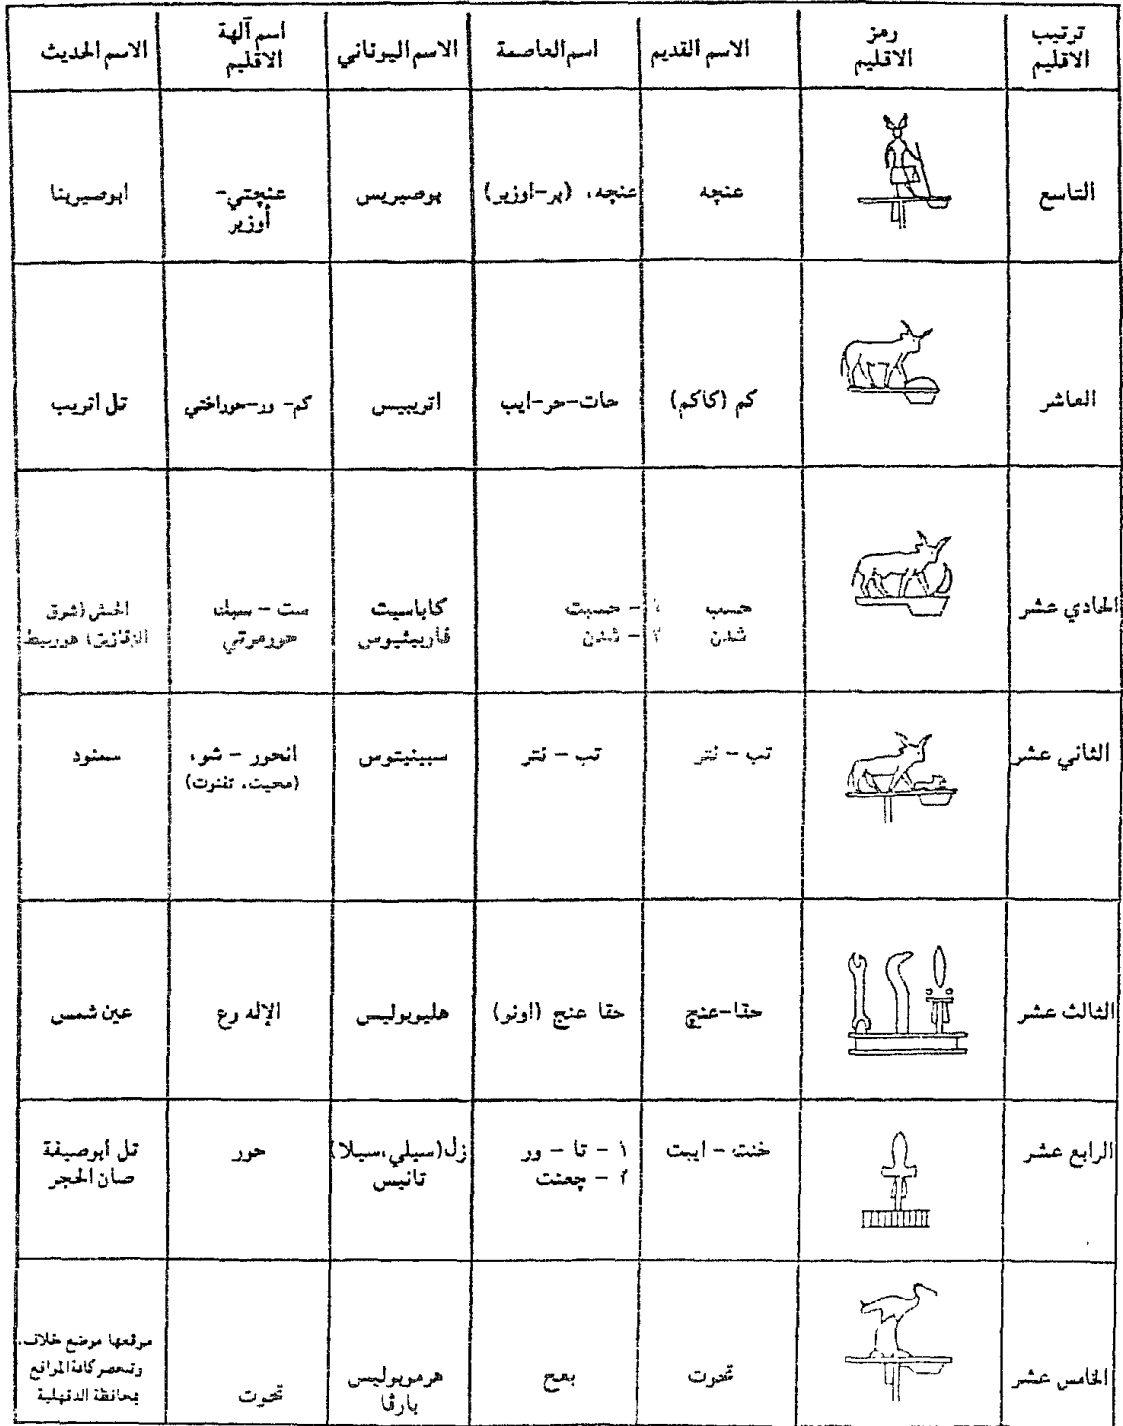 ترتيب الاقليم | رمز الاقليم | الاسم القديم | اسم العاصمة | الاسم اليوناني | اسم آلهة الاقليم | الاسم الحديث
التاسع | عنچه | عنچه، (پر-اوزير) | بوصيريس | عنچتي- أوزير | ابوصيربنا
العاشر | كم (كاكم) | حات-حر-ايب | اتريبيس | كم- ور-حوراختي | تل اتريب
الحادي عشر | حسب | ١ - حسبت | كاباسيت | ست - سبك | (شرق
شدن | ٢ - شدن | فاربيثيوس | حورمرتي | الزقازيق) هوربيط
الثاني عشر | تب - نتر | تب - نتر | سبينيتوس | انحور - شو، | سمنود
(محيت، تفنوت)
الثالث عشر | حقا-عنچ | حقا عنج (اونو) | هليوبوليس | الإله رع | عين شمس
الرابع عشر | خنت - ايبت | ١ - تا - ور | زل(سيلي،سيلا) | حور | تل ابوصيفة
٢ - چعنت | تانيس | صان الحجر
الخامس عشر | تحوت | بعح | هرموبوليس بارڤا | تحوت | موقعها موضع خلاف، وتنحصر كافة المواقع بمحافظة الدقهلية